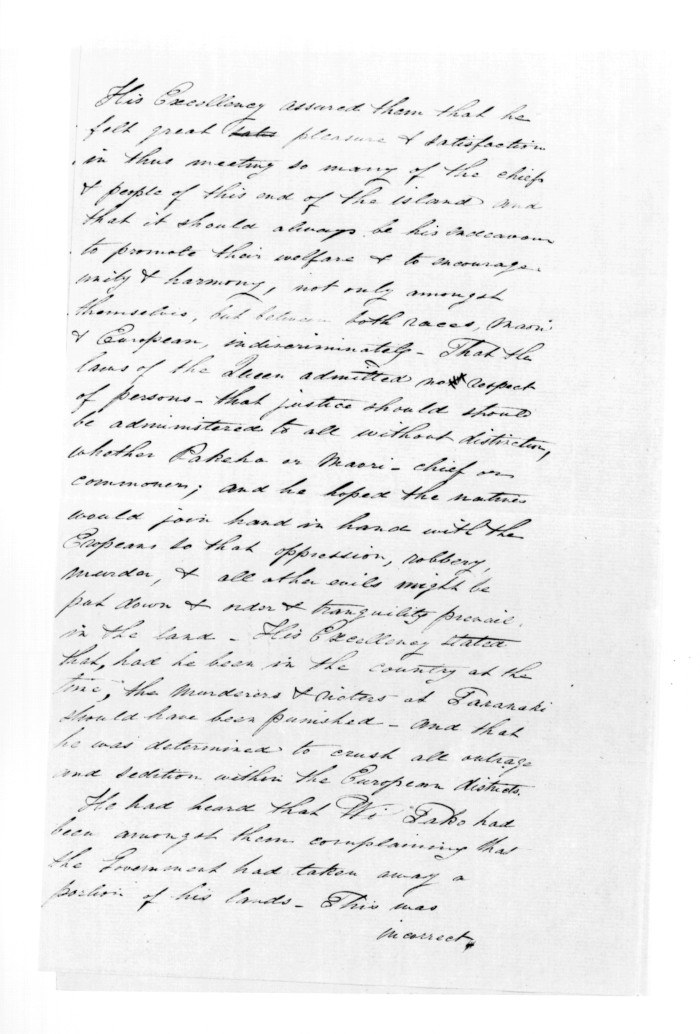 His Excellency assured them that he
felt great pleasure & satisfaction
in thus meeting so many of the chiefs
& people of this end of the island and
that it should always be his endeavour
to promote their welfare & to encourage
unity & harmony, not only amongst
themselves, but between both races, Maori
& European, indiscriminately - That the
laws of the Queen admitted no respect
of persons - that justice should should
be administered to all without distinction,
whether Pakeha or Maori - chief or
commoner; and he hoped the natives
would join hand in hand with the
Eropeans so that oppression, robbery,
murder, & all other evils might be
put down & order & tranquility prevail
in the land - His Excellency stated
that, had he been in the country at the
time, the murderers & rioters at Taranaki
should have been punished - and that
he was determined to crush all outrage
and sedition within the European districts.
He had heard that Wi Tako had
been amongst them complaining that
the Government had taken away a
portion of his lands - This was
incorrect,